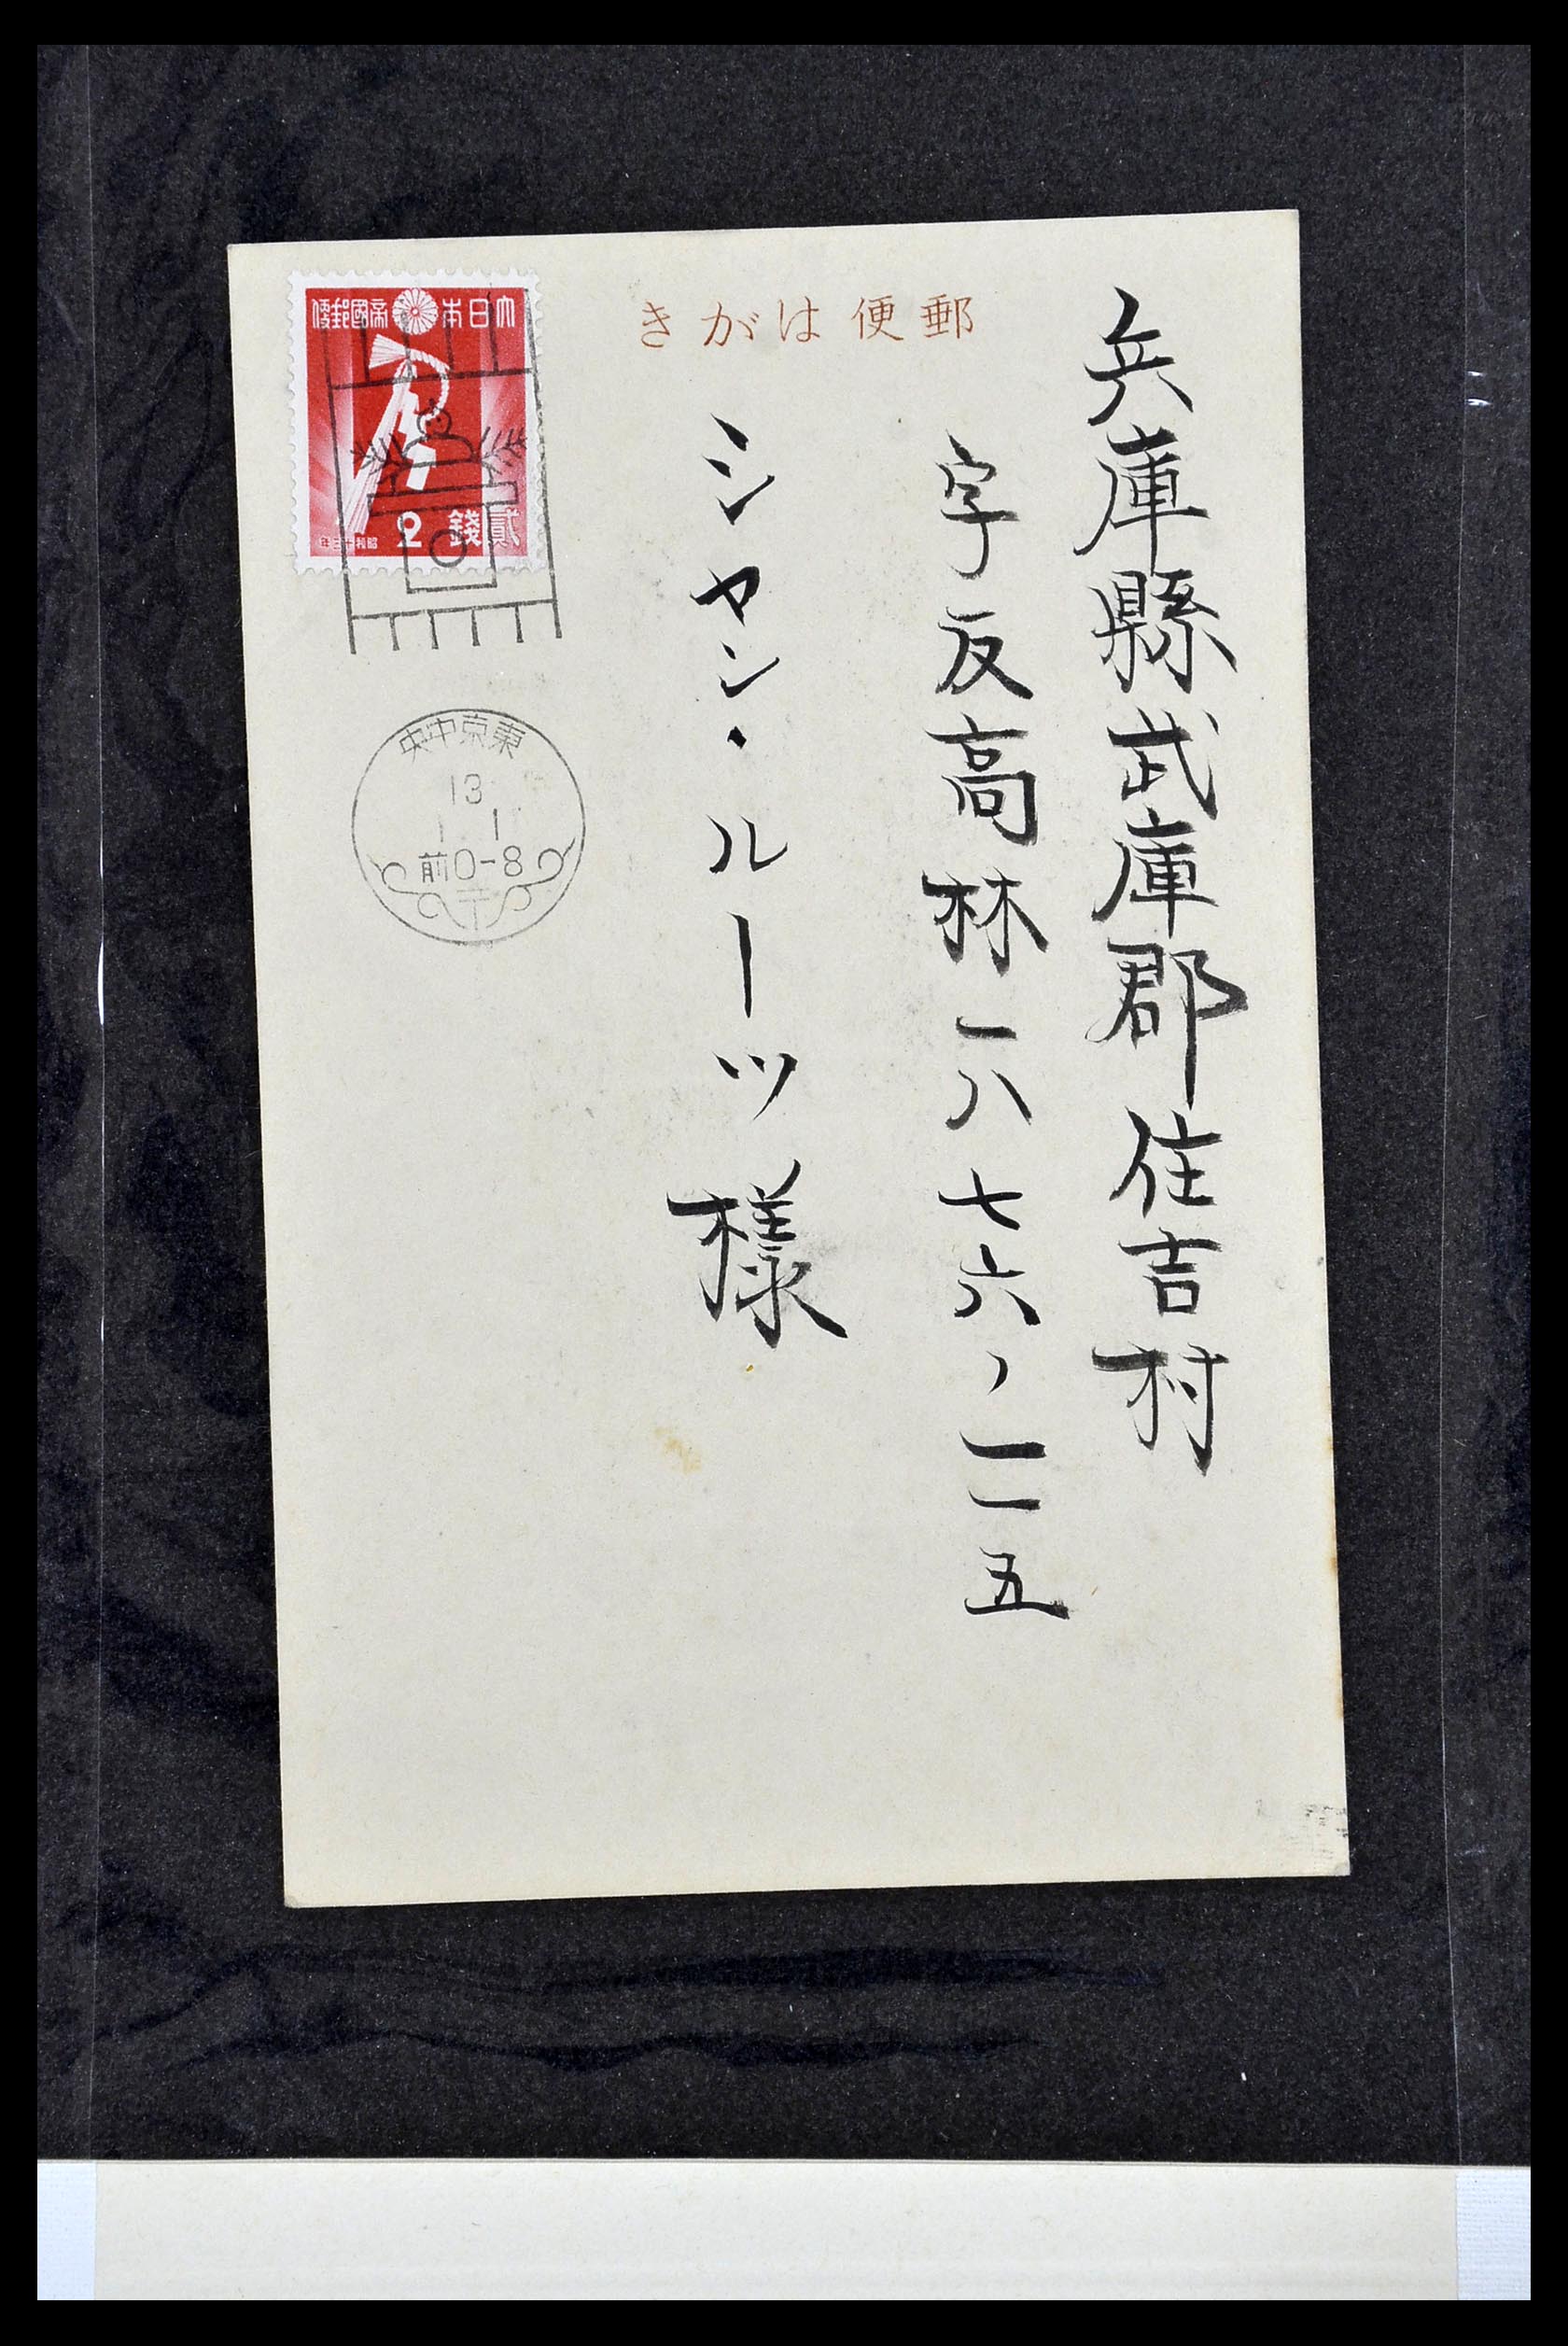 郵便はがき
兵庫縣武庫郡住吉村
字反高林一八七六ノ一一五
シャン・ルーツ様
大日本帝國郵便
貳錢 2
昭和十三年
東京中央
13
1 1
前0-8